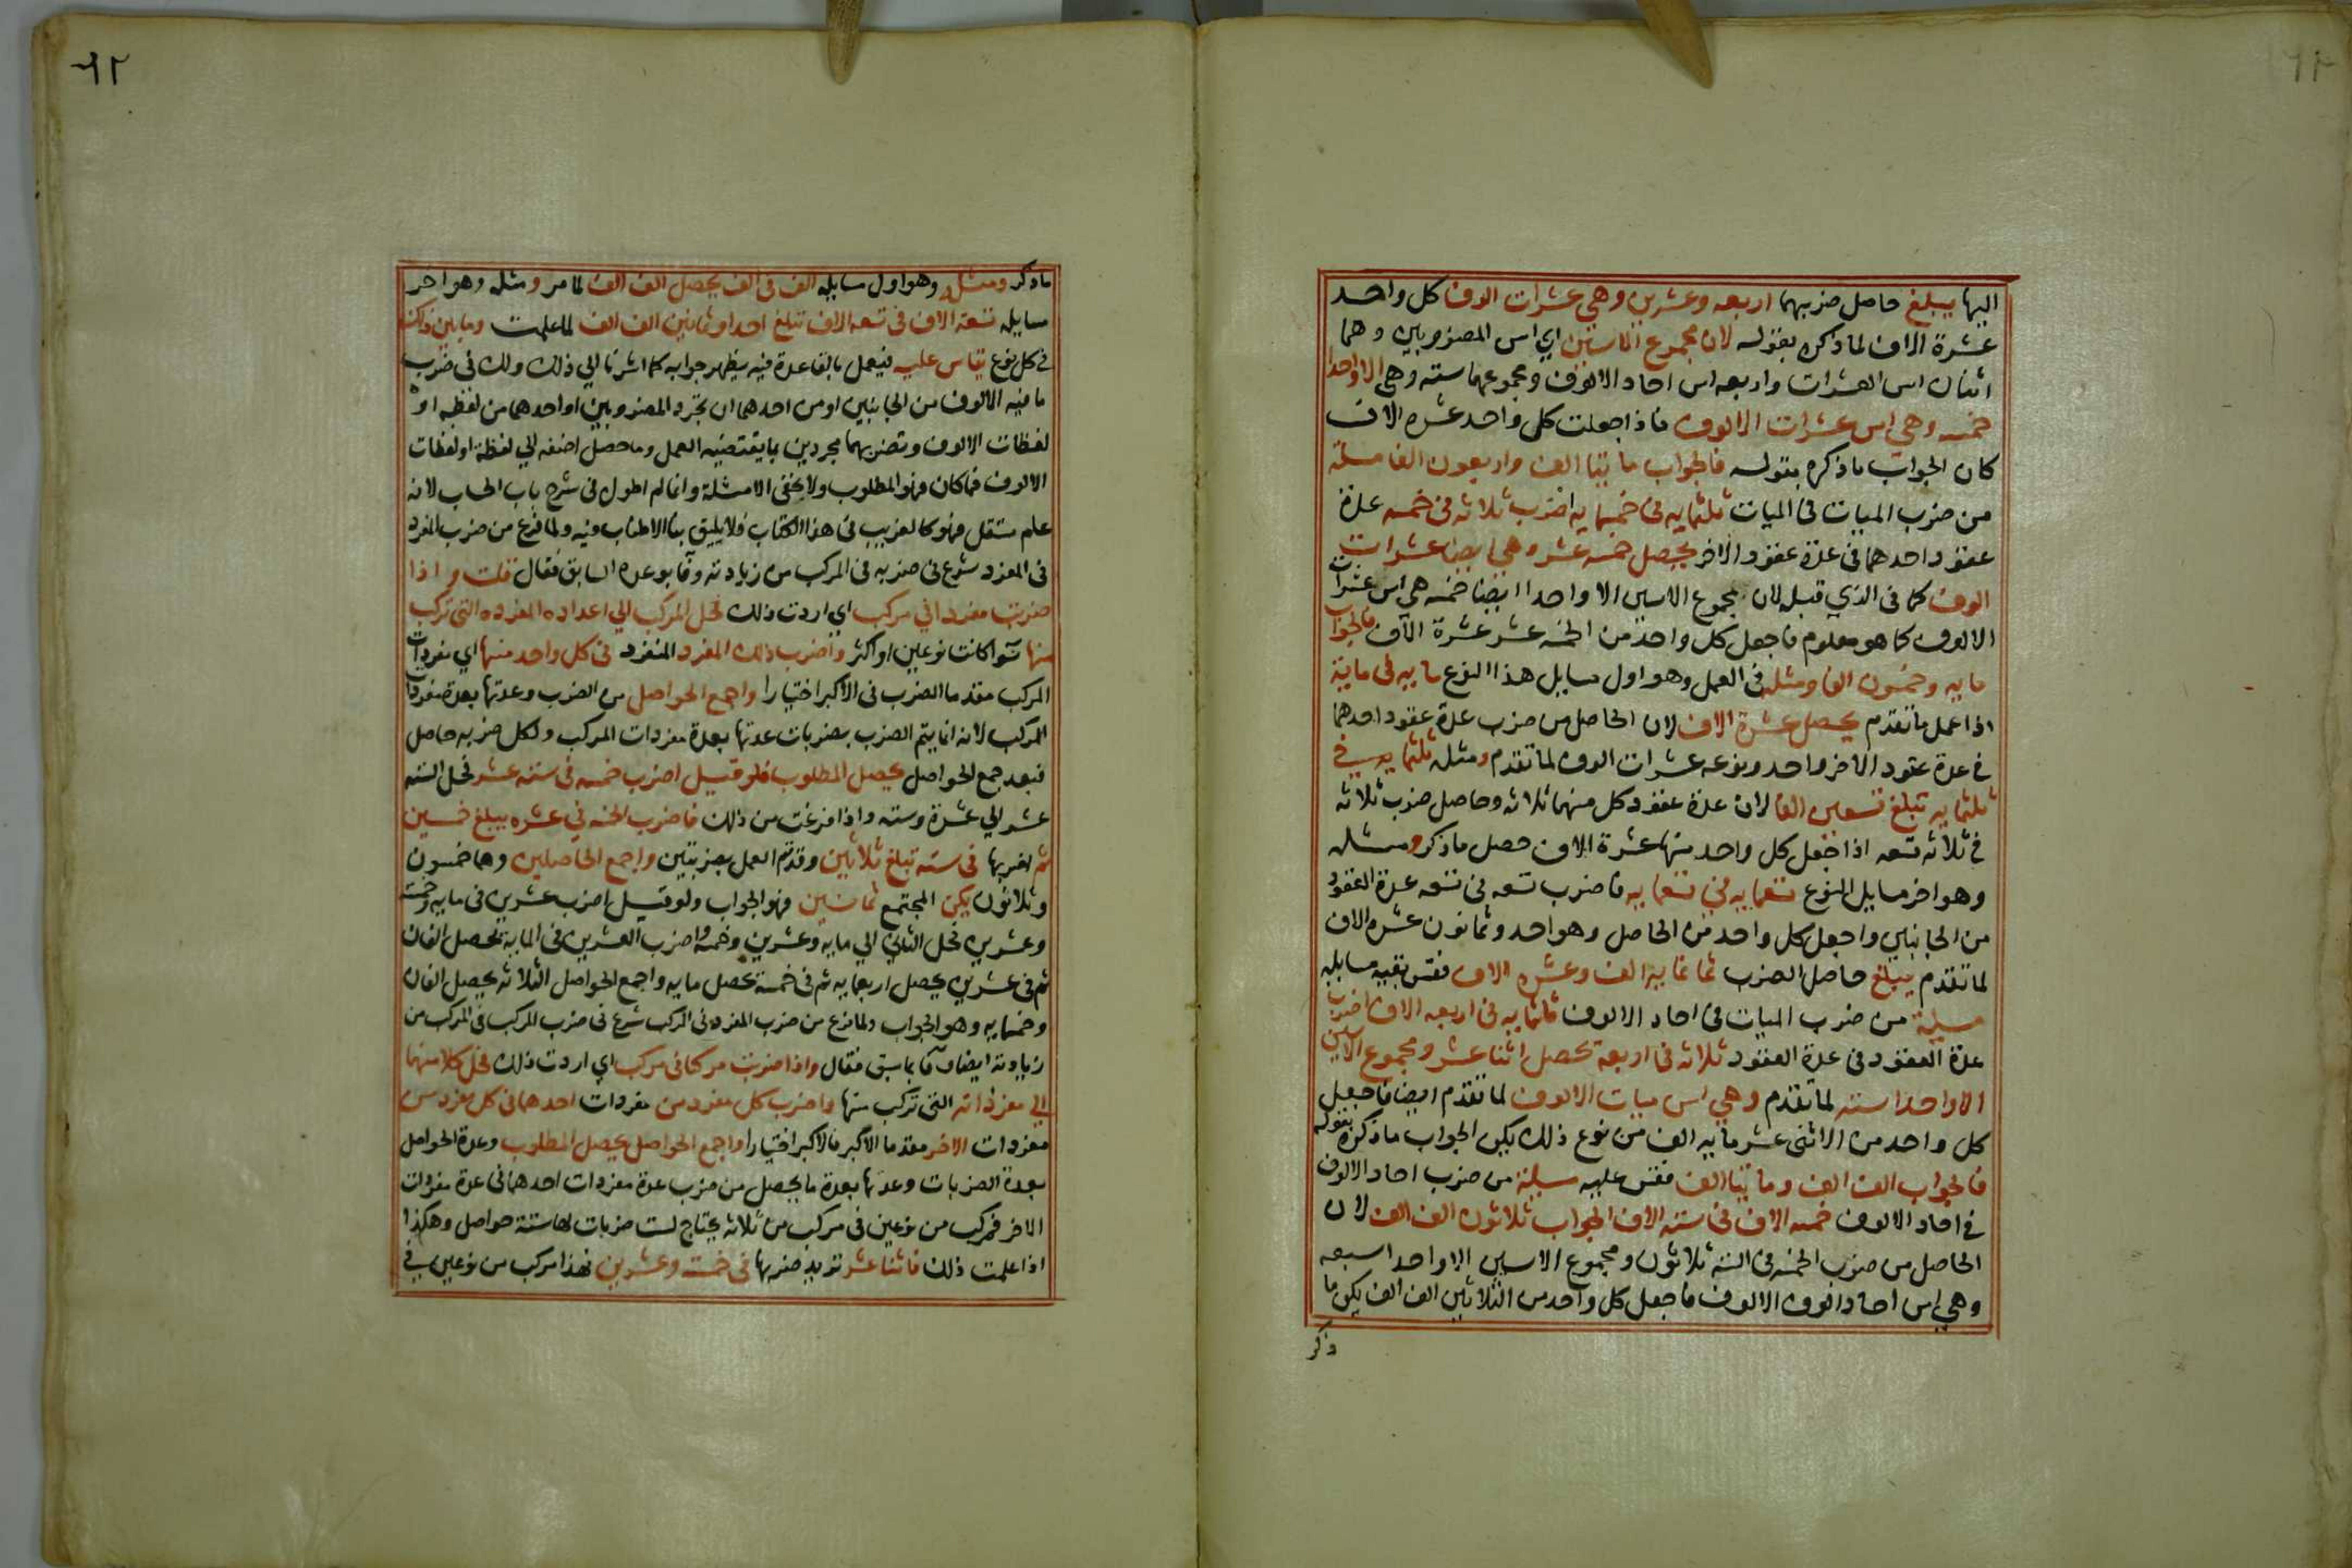 اليها يبلغ حاصل ضربهما اربعه وعشرين وهي عشرات الوف كل واحد
عشرة الاف لما ذكره بقوله لان مجموع الاسين اي اس المضروبين وهما
اثنان اس العشرات واربعه اس احاد الالوف ومجموعهما سته وهي الا واحدا
خمسه وهي اس عشرات الالوف فاذا جعلت كل واحد عشره الاف
كان الجواب ما ذكره بقوله فالجواب مايتا الف واربعون الفا مسلة
من ضرب الميات في الميات ثلثمايه في خمسمايه اضرب ثلاثه في خمسه عدة
عقود احدهما في عدة عقود الاخر يحصل خمسه عشر وهي ايضا عشرات
الوف كما في الذي قبله لان مجموع الاسين الا واحدا ايضا خمسه هي اس عشرات
الالوف كما هو معلوم فاجعل كل واحد من الخمسه عشر عشرة الاف فالجواب
مايه وخمسون الفا ومثله في العمل وهو اول مسايل هذا النوع مايه في ماية
اذا عمل ما تقدم يحصل عشرة الاف لان الحاصل من ضرب عدة عقود احدهما
في عدة عقود الاخر واحد ونوعه عشرات الوف لما تقدم ومثله ثلثمايه في
ثلثمايه تبلغ تسعين الفا لان عدة عقود كل منهما ثلاثه وحاصل ضرب ثلاثه
في ثلاثه تسعه اذا جعل كل واحد منها عشرة الاف حصل ما ذكر ومثله
وهو اخر مسايل النوع تسعمايه في تسعمايه فاضرب تسعه في تسعه عدة العقود
من الجانبين واجعل كل واحد من الحاصل وهو احد وثمانون عشره الاف
لما تقدم يبلغ حاصل الضرب ثمانماية الف وعشره الاف فقس بقيه مسايله
مسيلة من ضرب الميات في احاد الالوف ثلثمايه في اربعه الاف اضرب
عدة العقود في عدة العقود ثلاثه في اربعة تحصل اثنا عشر ومجموع الاسين
الا واحدا سته لما تقدم وهي اس ميات الالوف لما تقدم ايضا فاجعل
كل واحد من الاثني عشر مايه الف من نوع ذلك يكن الجواب ما ذكره بقوله
فالجواب الف الف ومايتا الف فقس عليه مسيلة من ضرب احاد الالوف
في احاد الالوف خمسه الاف في سته الاف الجواب ثلاثون الف الف لان
الحاصل من ضرب الخمسه في السته ثلاثون ومجموع الاسين الا واحدا سبعه
وهي اس احاد الوف الالوف فاجعل كل واحد من الثلاثين الف الف يكن ما
ذكر
٦٢
ما ذكر ومثله وهو اول مسايله الف في الف يحصل الف الف لما مر ومثله وهو اخر
مسايله تسعة الاف في تسعه الاف تبلغ احدا وثمانين الف الف لما علمت وما بين ذلك
في كل نوع يقاس عليه فيعمل بالقاعدة فيه يظهر جوابه كما اشرنا الي ذلك ولك في ضرب
ما فيه الالوف من الجانبين او من احدهما ان تجرد المضروبين او احدهما من لفظه او
لفظات الالوف وتضربهما مجردين بما يقتضيه العمل وما حصل اضفه الي لفظة او لفظات
الالوف فما كان فهو المطلوب ولا يخفي الامثلة وانما لم اطول في شرح باب الحساب لانه
علم مستقل فهو كالغريب في هذا الكتاب فلا يليق بنا الاطناب فيه ولما فرغ من ضرب المفرد
في المفرد شرع في ضربه في المركب من زيادته وفا بوعده السابق فقال قلت واذا
ضربت مفردا في مركب اي اردت ذلك فحل المركب الي اعداده المفرده التي تركب
منها سوآ كانت نوعين او اكثر واضرب ذلك المفرد المنفرد في كل واحد منها اي مفردات
المركب مقدما الضرب في الاكبر اختيارا واجمع الحواصل من الضرب وعدتها بعدة مفردات
المركب لانه انما يتم الضرب بضربات عدتها بعدة مفردات المركب ولكل ضربه حاصل
فبعد جمع الحواصل يحصل المطلوب فلو قيل اضرب خمسه في سته عشر فحل السته
عشر الي عشرة وسته واذا فرغت من ذلك فاضرب الخمسه في عشره يبلغ خمسين
ثم اضربها في سته تبلغ ثلاثين وقد تم العمل بضربتين واجمع الحاصلين وهما خمسون
وثلاثون يكن المجتمع ثمانين فهو الجواب ولو قيل اضرب عشرين في مايه وخمسة
وعشرين فحل الثاني الي مايه وعشرين وخمسه واضرب العشرين في الماية يحصل الفان
ثم في عشرين يحصل اربعمايه ثم في خمسة يحصل مايه واجمع الحواصل الثلاثه يحصل الفان
وخمسمايه وهو الجواب ولما فرغ من ضرب المفرد في المركب شرع في ضرب المركب في المركب من
زيادته ايضا وفآ بما سبق فقال واذا ضربت مركبا في مركب اي اردت ذلك فحل كلا منهما
الي مفرداته التي تركب منها واضرب كل مفرد من مفردات احدهما في كل مفرد من
مفردات الاخر مقدما الاكبر فالاكبر اختيارا واجمع الحواصل يحصل المطلوب وعدة الحواصل
بعدة الضربات وعدتها بعدة ما يحصل من ضرب عدة مفردات احدهما في عدة مفردات
الاخر فمركب من نوعين في مركب من ثلاثه يحتاج لست ضربات لها ستة حواصل وهكذا
اذا علمت ذلك فاثنا عشر تريد ضربها في خمسة وعشرين فهذا مركب من نوعين في